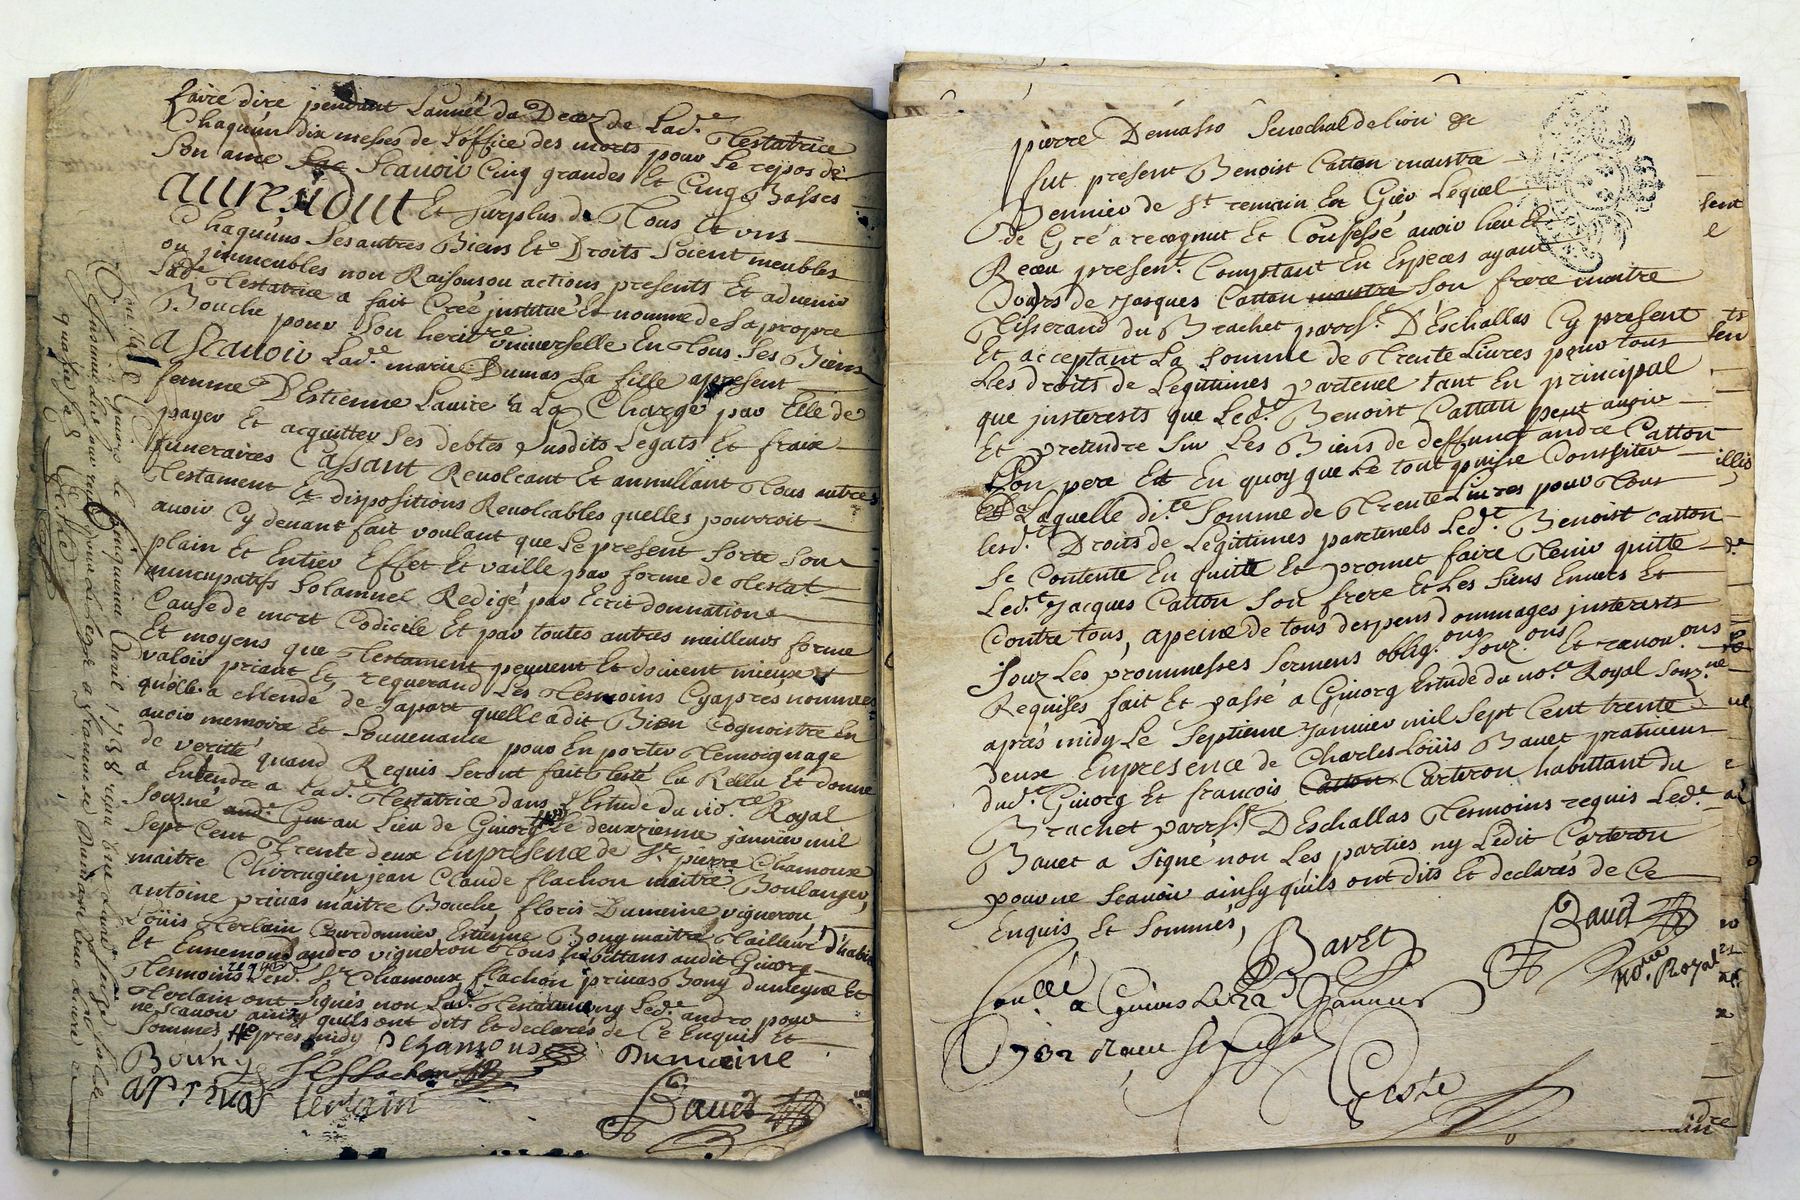 faire dire pendant Lannéé du Decez de Lad.e Testatrice
Chaquún dix messes de Loffice des morts pour Le repos de
Son ame Scauoir Cinq grandes Et Cinq Basses
au residut Et surplus de Tous Et vns
Chaquúns Ses autres Biens Et Droits Soient meubles
ou jmmeubles non Raisons ou actions presents Et aduenir
Lad.e Testatrice a fait Créé jnstitué Et nommé de Sa propre
Bouche pour Son herit.re vniuerselle En Tous Ses Biens
a Scauoir Lad.e marie Dumas Sa fille apresent
femme D'Estienne Lauire a La Charge par Elle de
payer Et acquitter Ses debtes Susdits Legats Et fraix
funeraires Cassant Reuolcant Et annullant Tous autres
Testament Et dispositions Reuolcables quelles pourroit
auoir Cy deuant fait voulant que Le present Sorte Son
plain Et Entier Effet Et vaille par forme de Testat
nuncupatif Solamnel Redigé par Ecrit donnation a
Cause de mort Codicile Et par toutes autres meilleurs forme
Et moyens que Testament peuuent Et doiuent mieux
valoir priant Et requerand Les Tesmoins Cyapres nommés
quelle a Mendé de Sapart quelle a dit Bien Cognoistre En
auoir memoire Et Souuenance pour En porter Temoignage
de verité quand Requis Seront fait Testé Lu Rellu Et donné
a Entendre a Lad.e Testatrice dans L'Estude du no.re Royal
Sourné au Lieu de Giuorg Le deuxzienne januier mil
Sept Cent Trente deux Enpresence de Sr. pierre Chamoux
maitre Chirrugien jean Claude flachon maitre Boulanger,
antoine priuas maitre Bouche floris Dumeine vigneron,
Loüis Terlain Courdonnier Estienne Bouy maitre Tailleur D'habit
Et Ennemond andro vigneron Tous habittans audit Giuorg
Tesmoins requis Lesd. Sr. Chamoux flachon priuas Bouy dumeyne Et
Terlain ont Signés non Lad. Testatrice ny Led.e andro pour
ne Scauoir ainsy quils ont dits Et declarés de Ce Enquis Et
Sommés apres midy
Bouny Chamoux Dumeine
J C flachon
aprivas terlain
Bauet
pierre Démasso Senechal de lion &c
fut present Benoist Catton maistre
Bennier de St. remain En Gier Lequel
de Gré a recognut Et Confessé auoir heu Et
Receu present. Comptant En Especes ayant
Cours de Jacques Catton maistre Son frere maitre
Tisserand du Brachet parrs. D'Eschallas Cy present
Et acceptant La Somme de Trente Liures pour tous
Les droits de Legitimes partenel tant En principal
que jnterests que Led.t Benoist Catton peut auoir
Et pretendre Sur Les Biens de deffunct andre Catton
Son pere Et En quoy que Le tout puisse Consister
de Laquelle di.te Somme de Trente Liures pour Tous
lesd.ts Droits de Legittimes partenels Led.t Benoist Catton
Se Contente En quitte Et promet faire Tenir quitte
Led.t Jacques Catton Son frere Et Les Siens Enuers Et
Contre tous, apeine de tous despens dommages jnterests
Souz Les prommesses Sermens oblig.ons Souz.ons Et renon.ons
Requises fait Et passé a Giuorg Estude du no.re Royal Souz.né
aprés midy Le Septienne Januier mil Sept Cent trente
deux Enpresence de Charles Loüis Bauet praticien
dud.t Giuorg Et francois Catton Carteron habittant du
Brachet parrs.e D'Eschallas Tesmoins requis Led.t
Bauet a Signé non Les parties ny Ledit Carteron
pour ne Scauoir ainsy quils ont dits Et declarés de Ce
Enquis Et Sommés,
Bavet Bauet
no.re Royal
Conllé a Giuors Le 22 Januier
1732 Receu six sols
Coste